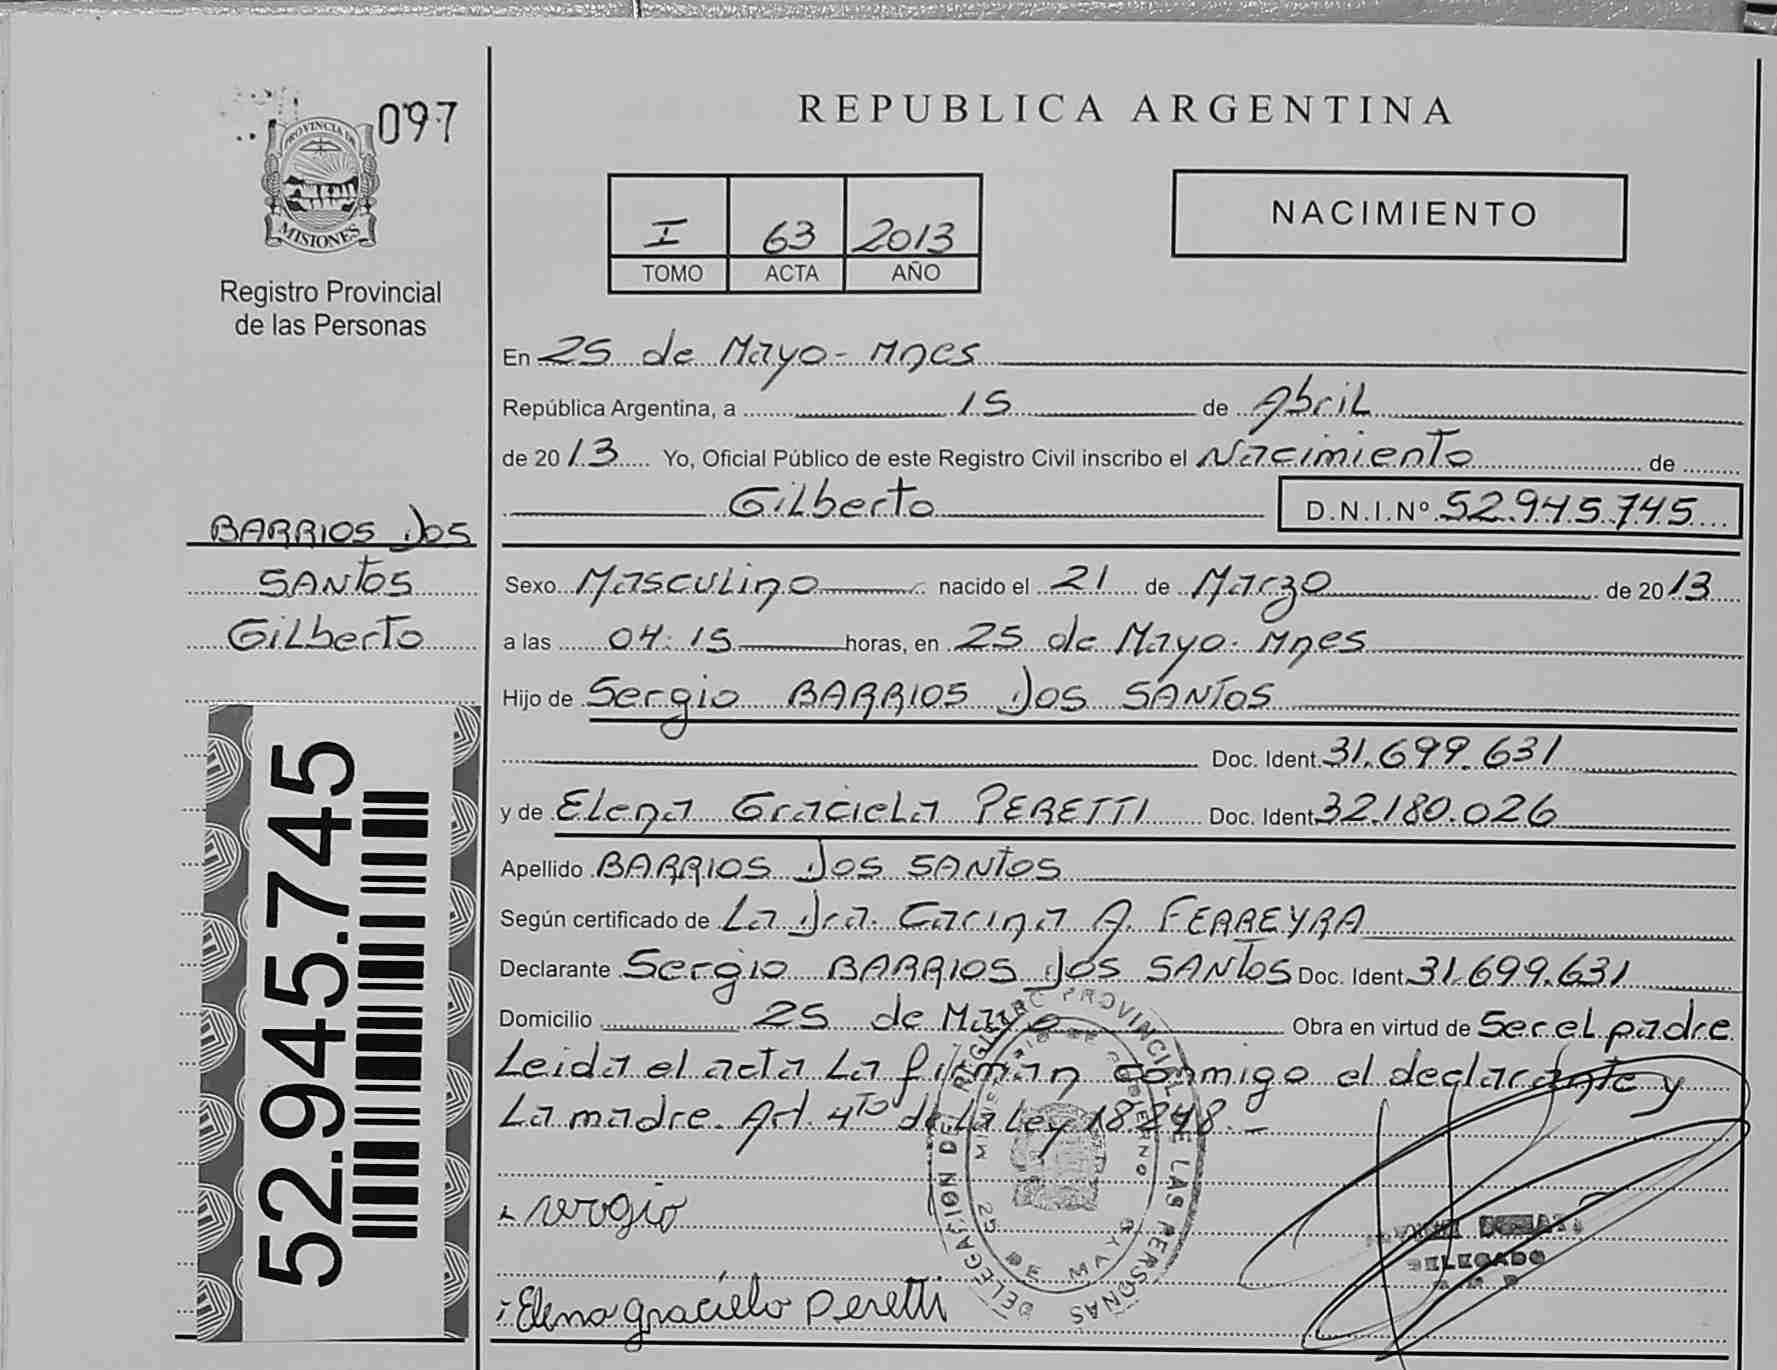 097
PROVINCIA DE
MISIONES
Registro Provincial
de las Personas
BARRIOS DOS
SANTOS
Gilberto
52.945.745
REPUBLICA ARGENTINA
I 63 2013
TOMO ACTA AÑO
NACIMIENTO
En 25 de Mayo - Mnes
República Argentina, a 15 de Abril
de 2013 Yo, Oficial Público de este Registro Civil inscribo el Nacimiento de
Gilberto D.N.I.Nº 52.945.745
Sexo Masculino nacido el 21 de Marzo de 2013
a las 04:15 horas, en 25 de Mayo - Mnes
Hijo de Sergio BARRIOS DOS SANTOS
Doc. Ident. 31.699.631
y de Elena Graciela PERETTI Doc. Ident. 32.180.026
Apellido BARRIOS DOS SANTOS
Según certificado de La Dra. Carina A. FERREYRA
Declarante Sergio BARRIOS DOS SANTOS Doc. Ident. 31.699.631
Domicilio 25 de Mayo Obra en virtud de Ser el padre
Leida el acta La firman conmigo el declarante y
La madre. Art. 4to de La Ley 18248.-
DELEGACION DEL REGISTRO PROVINCIAL DE LAS PERSONAS
MINISTERIO DE GOBIERNO
25 DE MAYO
sergio
DELEGADO
Elena graciela peretti